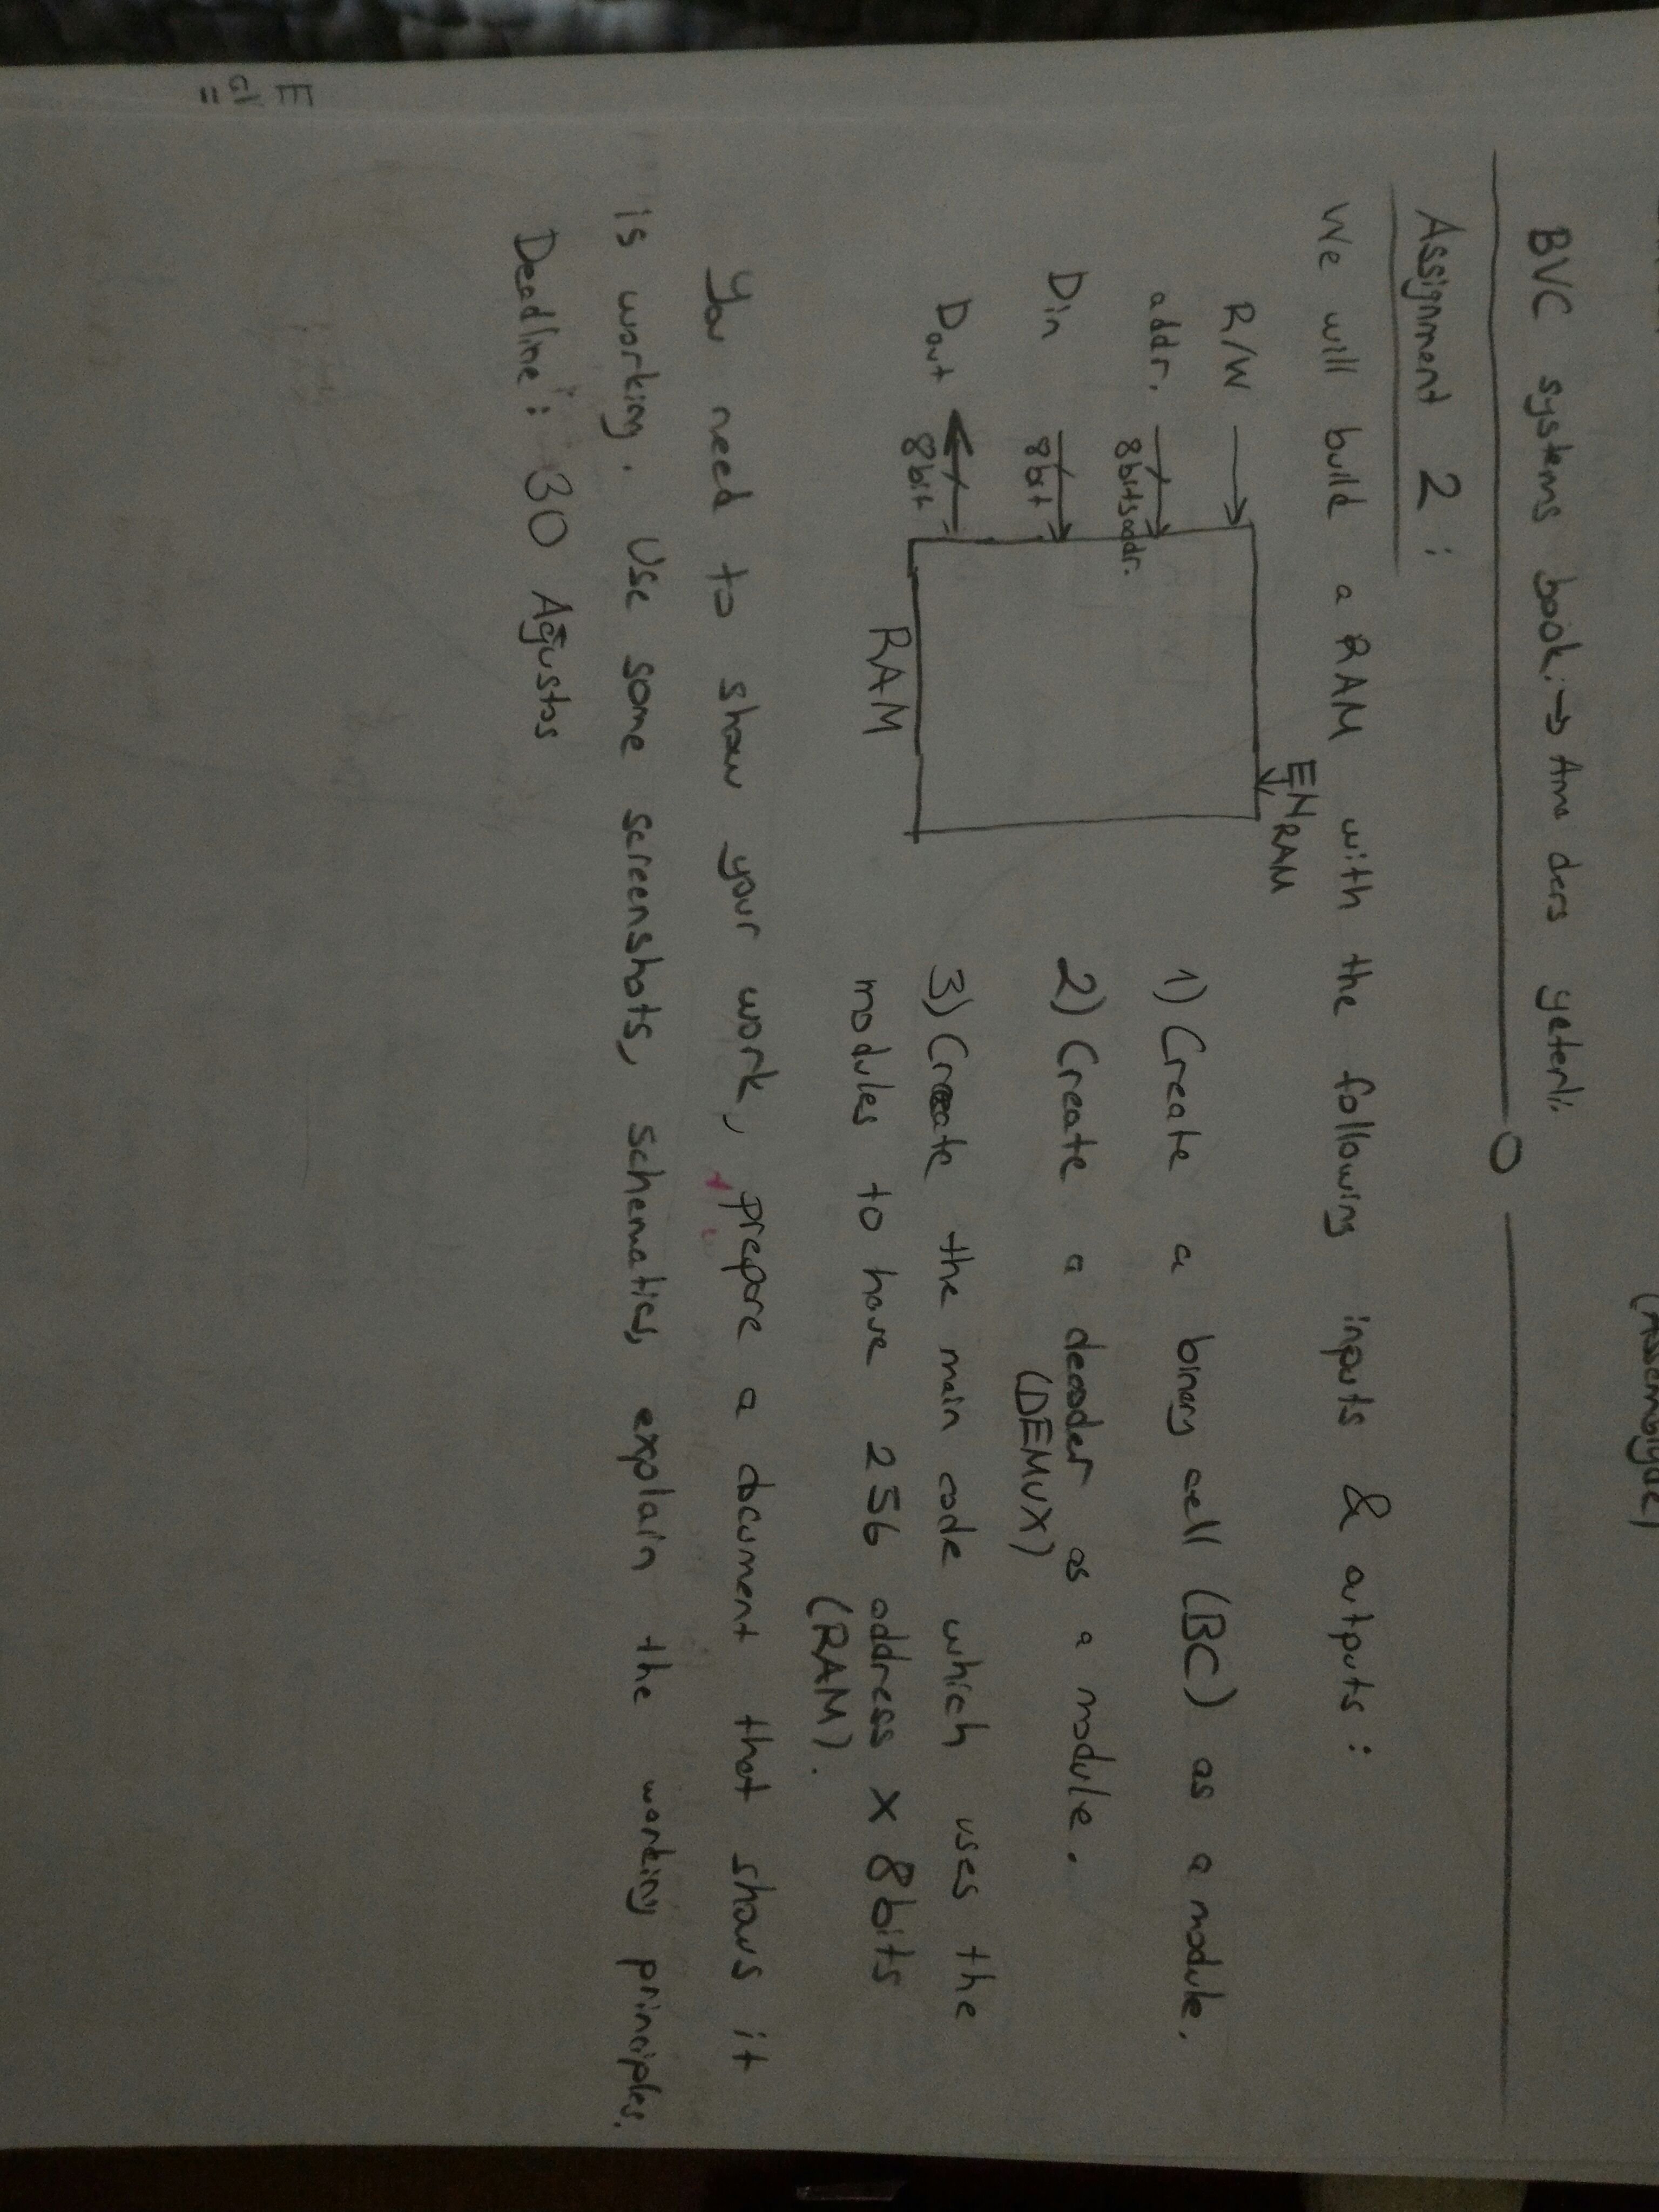 (Assemblyde)
BVC systems book. → Ama ders yeterli.
Assignment 2 :
We will build a RAM with the following inputs & outputs :
EN RAM
R/W
addr.
8bitsaddr.
Din
8bit
Dout
8bit
RAM
1) Create a binary cell (BC) as a module.
2) Create a decoder as a module.
(DEMUX)
3) Create the main code which uses the
modules to have 256 address x 8bits
(RAM).
You need to show your work, prepare a document that shows it
is working. Use some screenshots, schematics, explain the working principles.
Deadline : 30 Ağustos